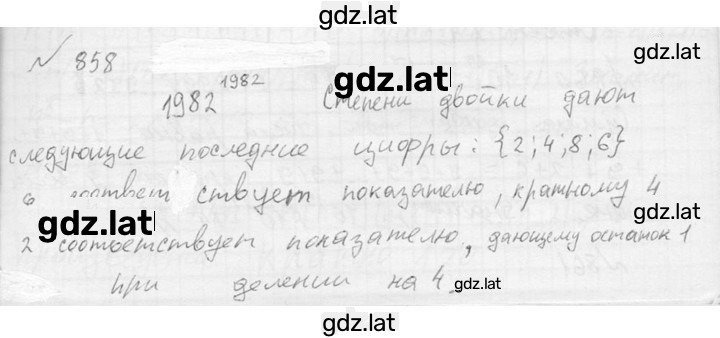 gdz.lat
№ 858
1982^1982 gdz.lat Степени двойки дают
следующие последние цифры: {2; 4; 8; 6}
6 соответствует показателю, кратному 4
gdz.lat
2 соответствует показателю, дающему остаток 1
при делении на 4.
gdz.lat